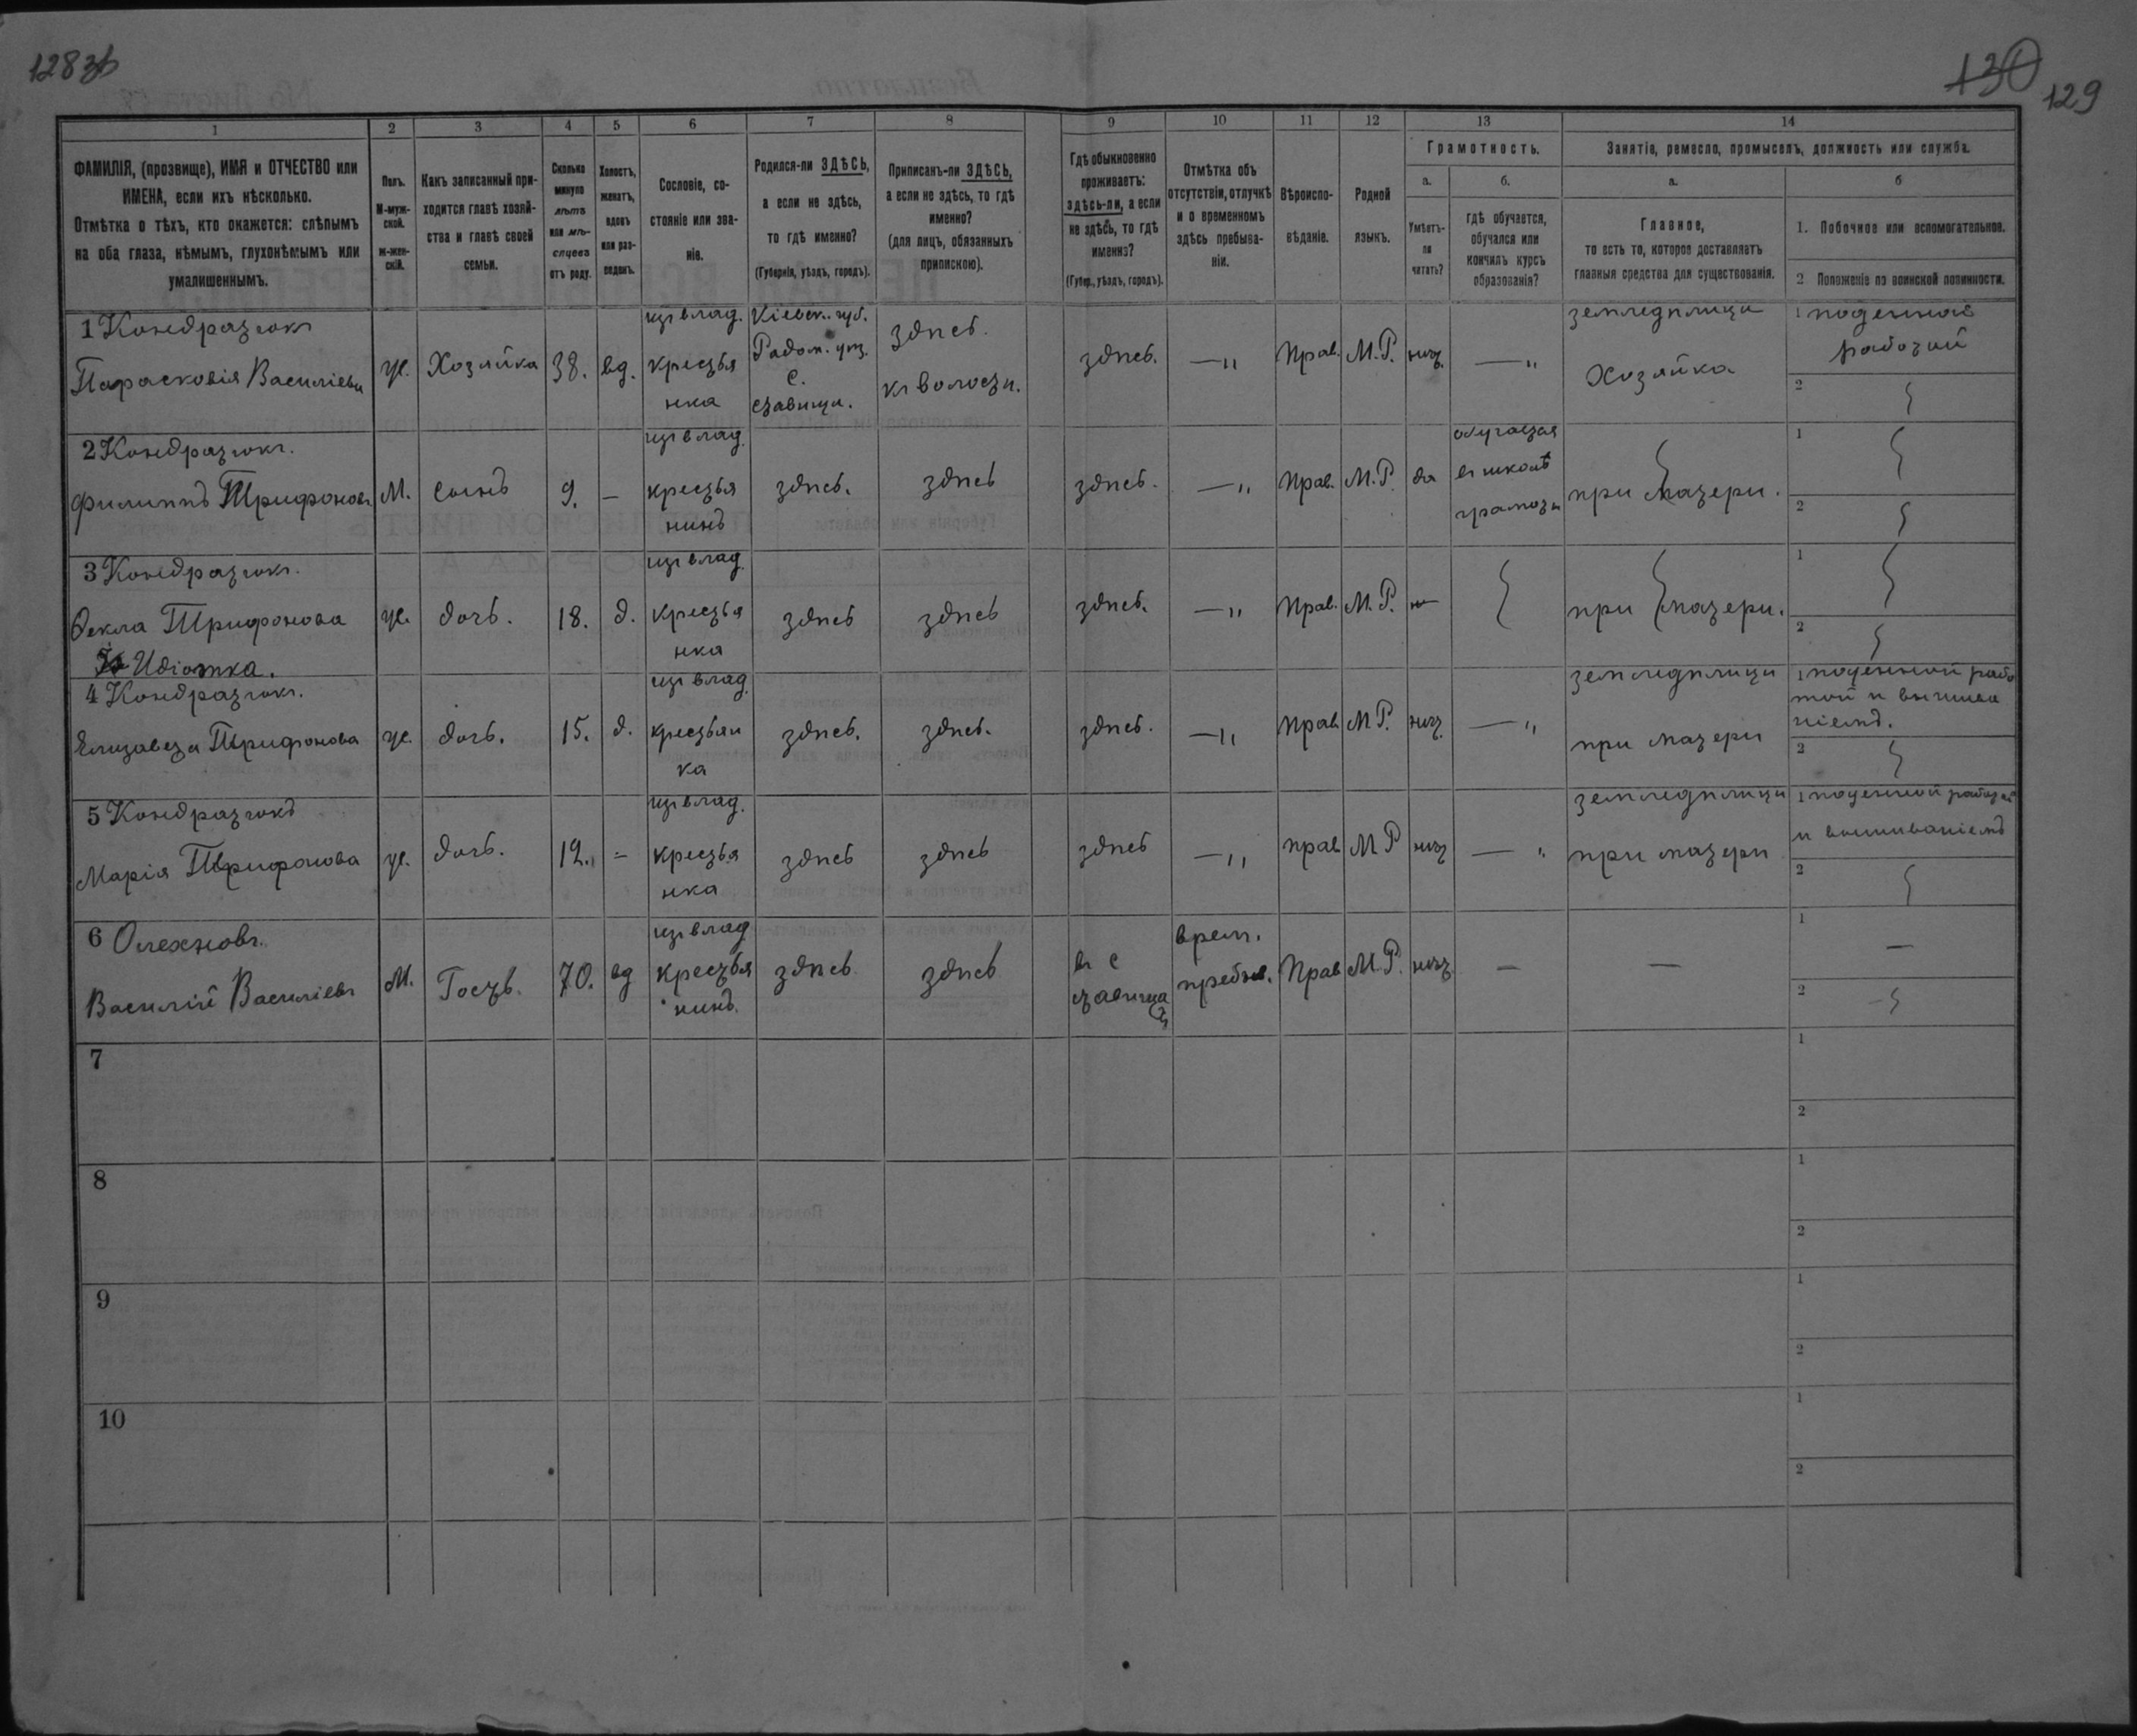 128 зв
130
129
1
2
3
4
5
6
7
8
9
10
11
12
13
14
ФАМИЛІЯ, (прозвище), ИМЯ и ОТЧЕСТВО или
ИМЕНА, если ихъ нѣсколько.
Отмѣтка о тѣхъ, кто окажется: слѣпымъ
на оба глаза, нѣмымъ, глухонѣмымъ или
умалишеннымъ.
Полъ.
М-муж-
ской.
ж-жен-
скій.
Какъ записанный при-
ходится главѣ хозяй-
ства и главѣ своей
семьи.
Сколько
минуло
лѣтъ
или мѣ-
сяцевъ
отъ роду.
Холостъ,
женатъ,
вдовъ
или раз-
веденъ.
Сословіе, со-
стояніе или зва-
ніе.
Родился-ли ЗДѢСЬ,
а если не здѣсь,
то гдѣ именно?
(Губернія, уѣздъ, городъ).
Приписанъ-ли ЗДѢСЬ,
а если не здѣсь, то гдѣ
именно?
(для лицъ, обязанныхъ
припискою).
Гдѣ обыкновенно
проживаетъ:
здѣсь-ли, а если
не здѣсь, то гдѣ
именно?
(Губер., уѣздъ, городъ).
Отмѣтка объ
отсутствіи, отлучкѣ
и о временномъ
здѣсь пребыва-
ніи.
Вѣроиспо-
вѣданіе.
Родной
языкъ.
Грамотность.
а.
Умѣетъ-
ли
читать?
б.
гдѣ обучается,
обучался или
кончилъ курсъ
образованія?
Занятіе, ремесло, промыселъ, должность или служба.
а.
Главное,
то есть то, которое доставляетъ
главныя средства для существованія.
б
1. Побочное или вспомогательное.
2 Положеніе по воинской повинности.
1 Кондратюкъ
Парасковія Василіевн
ж.
Хозяйка
38.
вд.
изъ влад.
крестья
нка
Кіевск. губ.
Радом. уѣз.
с.
ставищи.
здѣсь.
къ волости.
здѣсь.
—"
Прав.
М.Р.
нѣт.
—"
земледѣлица
Хозяйка
1 поденной
работай
2
2 Кондратюкъ.
Филиппъ Трифоновъ
М.
сынъ
9.
—
изъ влад.
крестья
нинъ
здѣсь.
здѣсь
здѣсь.
—"
Прав.
М.Р.
да
обучаетая
въ школѣ
грамоты
при матери.
1
2
3 Кондратюкъ.
Ѳекла Трифонова
Идіотка.
ж.
дочь.
18.
д.
изъ влад.
крестья
нка
здѣсь
здѣсь
здѣсь.
—"
Прав.
М.Р.
при матери.
1
2
4 Кондратюкъ.
Елизавета Трифонова
ж.
дочь.
15.
д.
изъ влад.
крестьян
ка
здѣсь.
здѣсь.
здѣсь.
—"
Прав
М Р.
нѣт.
—"
земледѣлици
при матери
1 поденной рабо
той и вышива
ніемъ.
2
5 Кондратюкъ
Марія Трифонова
ж.
дочь.
12.
=
изъ влад.
крестья
нка
здѣсь
здѣсь
здѣсь
—"
прав
М Р
нѣт
—"
земледѣлици
при матери
1 поденной работай
и вышиваніемъ
2
6 Олехновъ.
Василій Василіевъ
М.
Гость.
70.
вд
изъ влад
крестья
нинъ.
здѣсь
здѣсь
въ с
ставища
врем.
пребыв.
Прав
М.Р.
нѣт
—
—
1 —
2
7
1
2
8
1
2
9
1
2
10
1
2